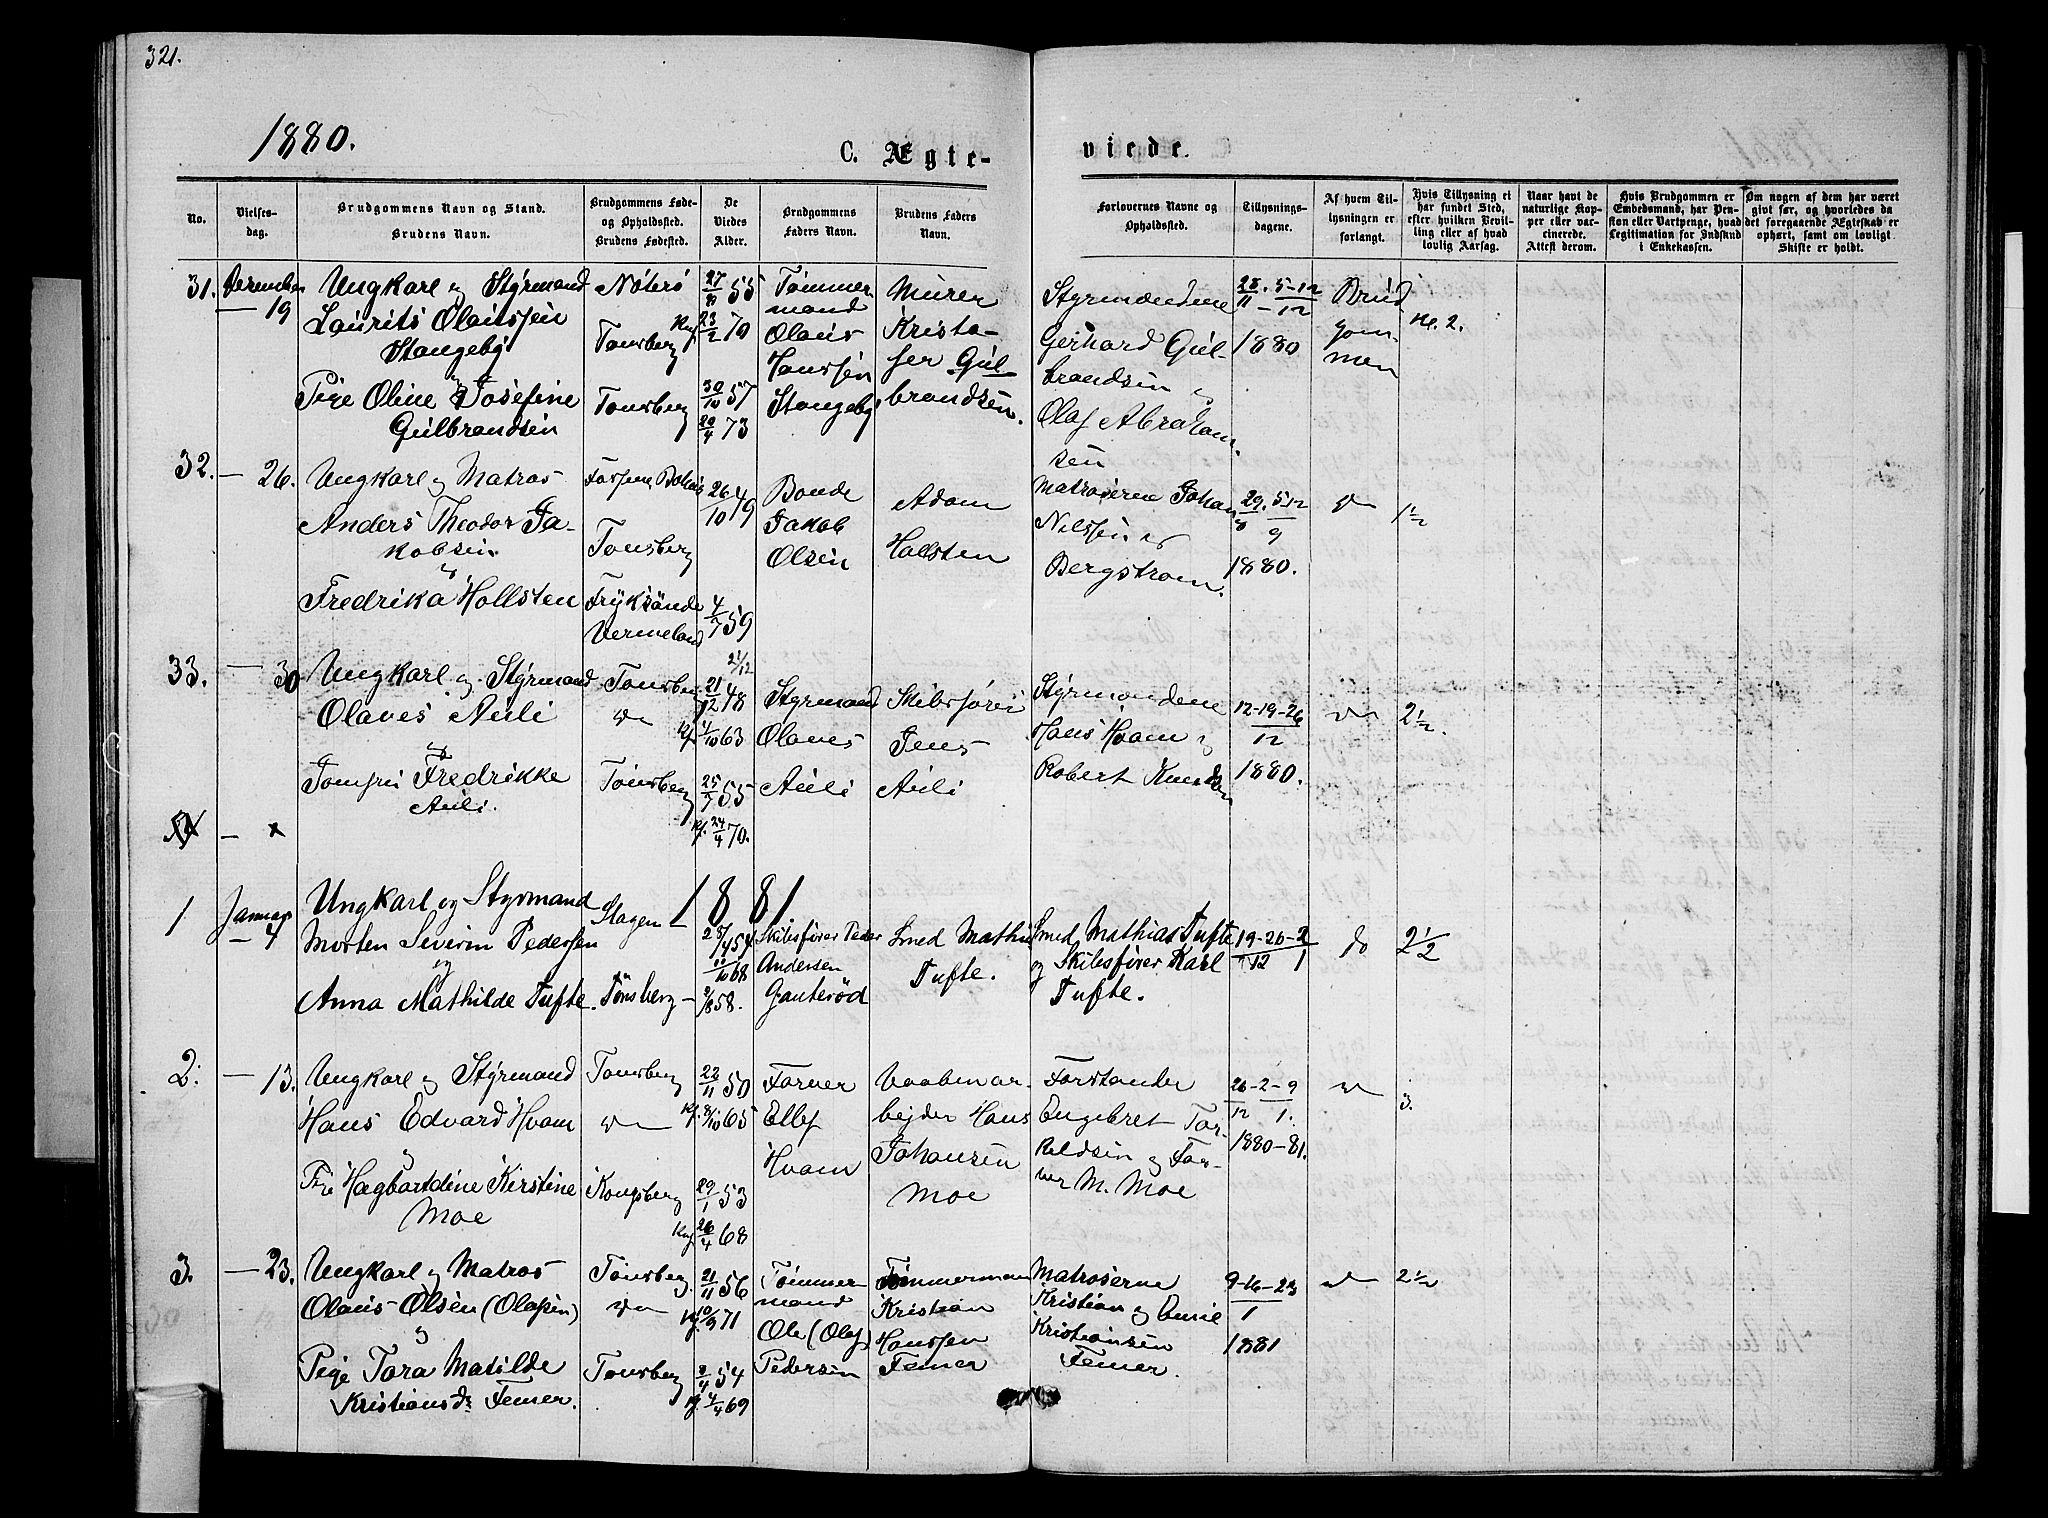 321.
1880.
C. Ægte-
viede.
No.
Vielses-
dag.
Brudgommens Navn og Stand.
Brudens Navn.
Brudgommens Føde-
og Opholdssted.
Brudens Fødested.
De
Viedes
Alder.
Brudgommens
Faders Navn.
Brudens Faders
Navn.
Forlovernes Navne og
Opholdssted.
Tillysnings-
dagene.
Af hvem Til-
lysningen er
forlangt.
Hvis Tillysning ei
har fundet Sted,
efter hvilken Bevil-
ling eller af hvad
lovlig Aarsag.
Naar havt de
naturlige Kop-
per eller vac-
cinerede.
Attest derom.
Hvis Brudgommen er
Embedsmand, har Pen-
sion eller Vartpenge, hvad
Legitimation for Indskud
i Enkekassen.
Om nogen af dem har været
givt før, og hvorledes da
det foregaaende Ægteskab er
ophørt, samt om lovligt
Skifte er holdt.
31.
December
— 19
Ungkarl og Styrmand
Laurits Olaussen
Stangeby
og
Pige Oline Josefine
Gulbrandsen
Nøterø
Tønsberg
Tønsberg
27/8 55
Kf. 23/2 70
30/10 57
20/4 73
Tømmer
mand
Olaus
Hanssen
Stangeby
Murer
Kristo-
fer Gul
brandsen.
Styrmændene
Gerhard Gul-
brandsen og
Olaf Abraham-
sen
28/11 . 5-12/12
1880
Brud
gom-
men
Kl. 2.
32.
— 26.
Ungkarl og Matros
Anders Theodor Ja-
kobsen
og
Fredrika Hollsten
Tønsberg
Fryksände
Vermeland
26/10 49
4/7 59
Bonde
Jakob
Olsen
Adam
Hollsten
Matroserne Johan
Nilssen og
Bergstrøm.
29/8. 5-12/9
1880.
do
1½
33.
— 30
Ungkarl og Styrmand
Olaves Auli
og
Jomfru Fredrikke
Auli.
Tønsberg
do
Tønsberg
21/12
21/12 48
Kf. 4/10 63
25/7 55
Kf. 24/4 70.
Styrmand
Olaves
Auli
Skibsfører
Jens
Auli
Styrmændene
Hans Hvam og
Robert Knudsen
12-19-26/12
1880.
do
2½.
1881
1
Januar
— 4
Ungkarl og Styrmand
Morten Severin Pedersen
og
Anna Mathilde Tufte.
Slagen —
Tønsberg —
28/4 54
11/10 68
2/8 58.
Skibsfører Peder
Andersen
Gauterød
Smed Mathias
Tufte.
Smed Mathias Tufte
og Skibsfører Karl
Tufte.
19-26-2/12 1
do
2½
2.
— 13.
Ungkarl og Styrmand
Hans Edvard Hvam
og
Pige Hagbartdine Kirstine
Moe
Tønsberg
do
Kongsberg
22/11 50
Kf. 8/10 65
29/1 53
Kf. 26/4 68
Farver
Ellef
Hvam
Vaabenar-
bejder Hans
Johansen
Moe
Forstander
Engebret Tor-
keldsen og Far-
ver M. Moe
26-2-9/12 1.
1880-81.
do
3.
3.
— 23.
Ungkarl og Matros
Olaus Olsen (Olafsen)
og
Pige Tora Matilde
Kristiansdr Femer.
Tønsberg.
do
Tønsberg
21/11 56
Kf. 10/9 71
8/4 54
Kf. 4/4 69
Tømmer
mand
Ole (Olaf)
Pedersen
Tømmermand
Kristian
Hanssen
Femer
Matroserne
Kristian og Emil
Kristiansen
Femer.
9-16-23/1
1881
do
2½